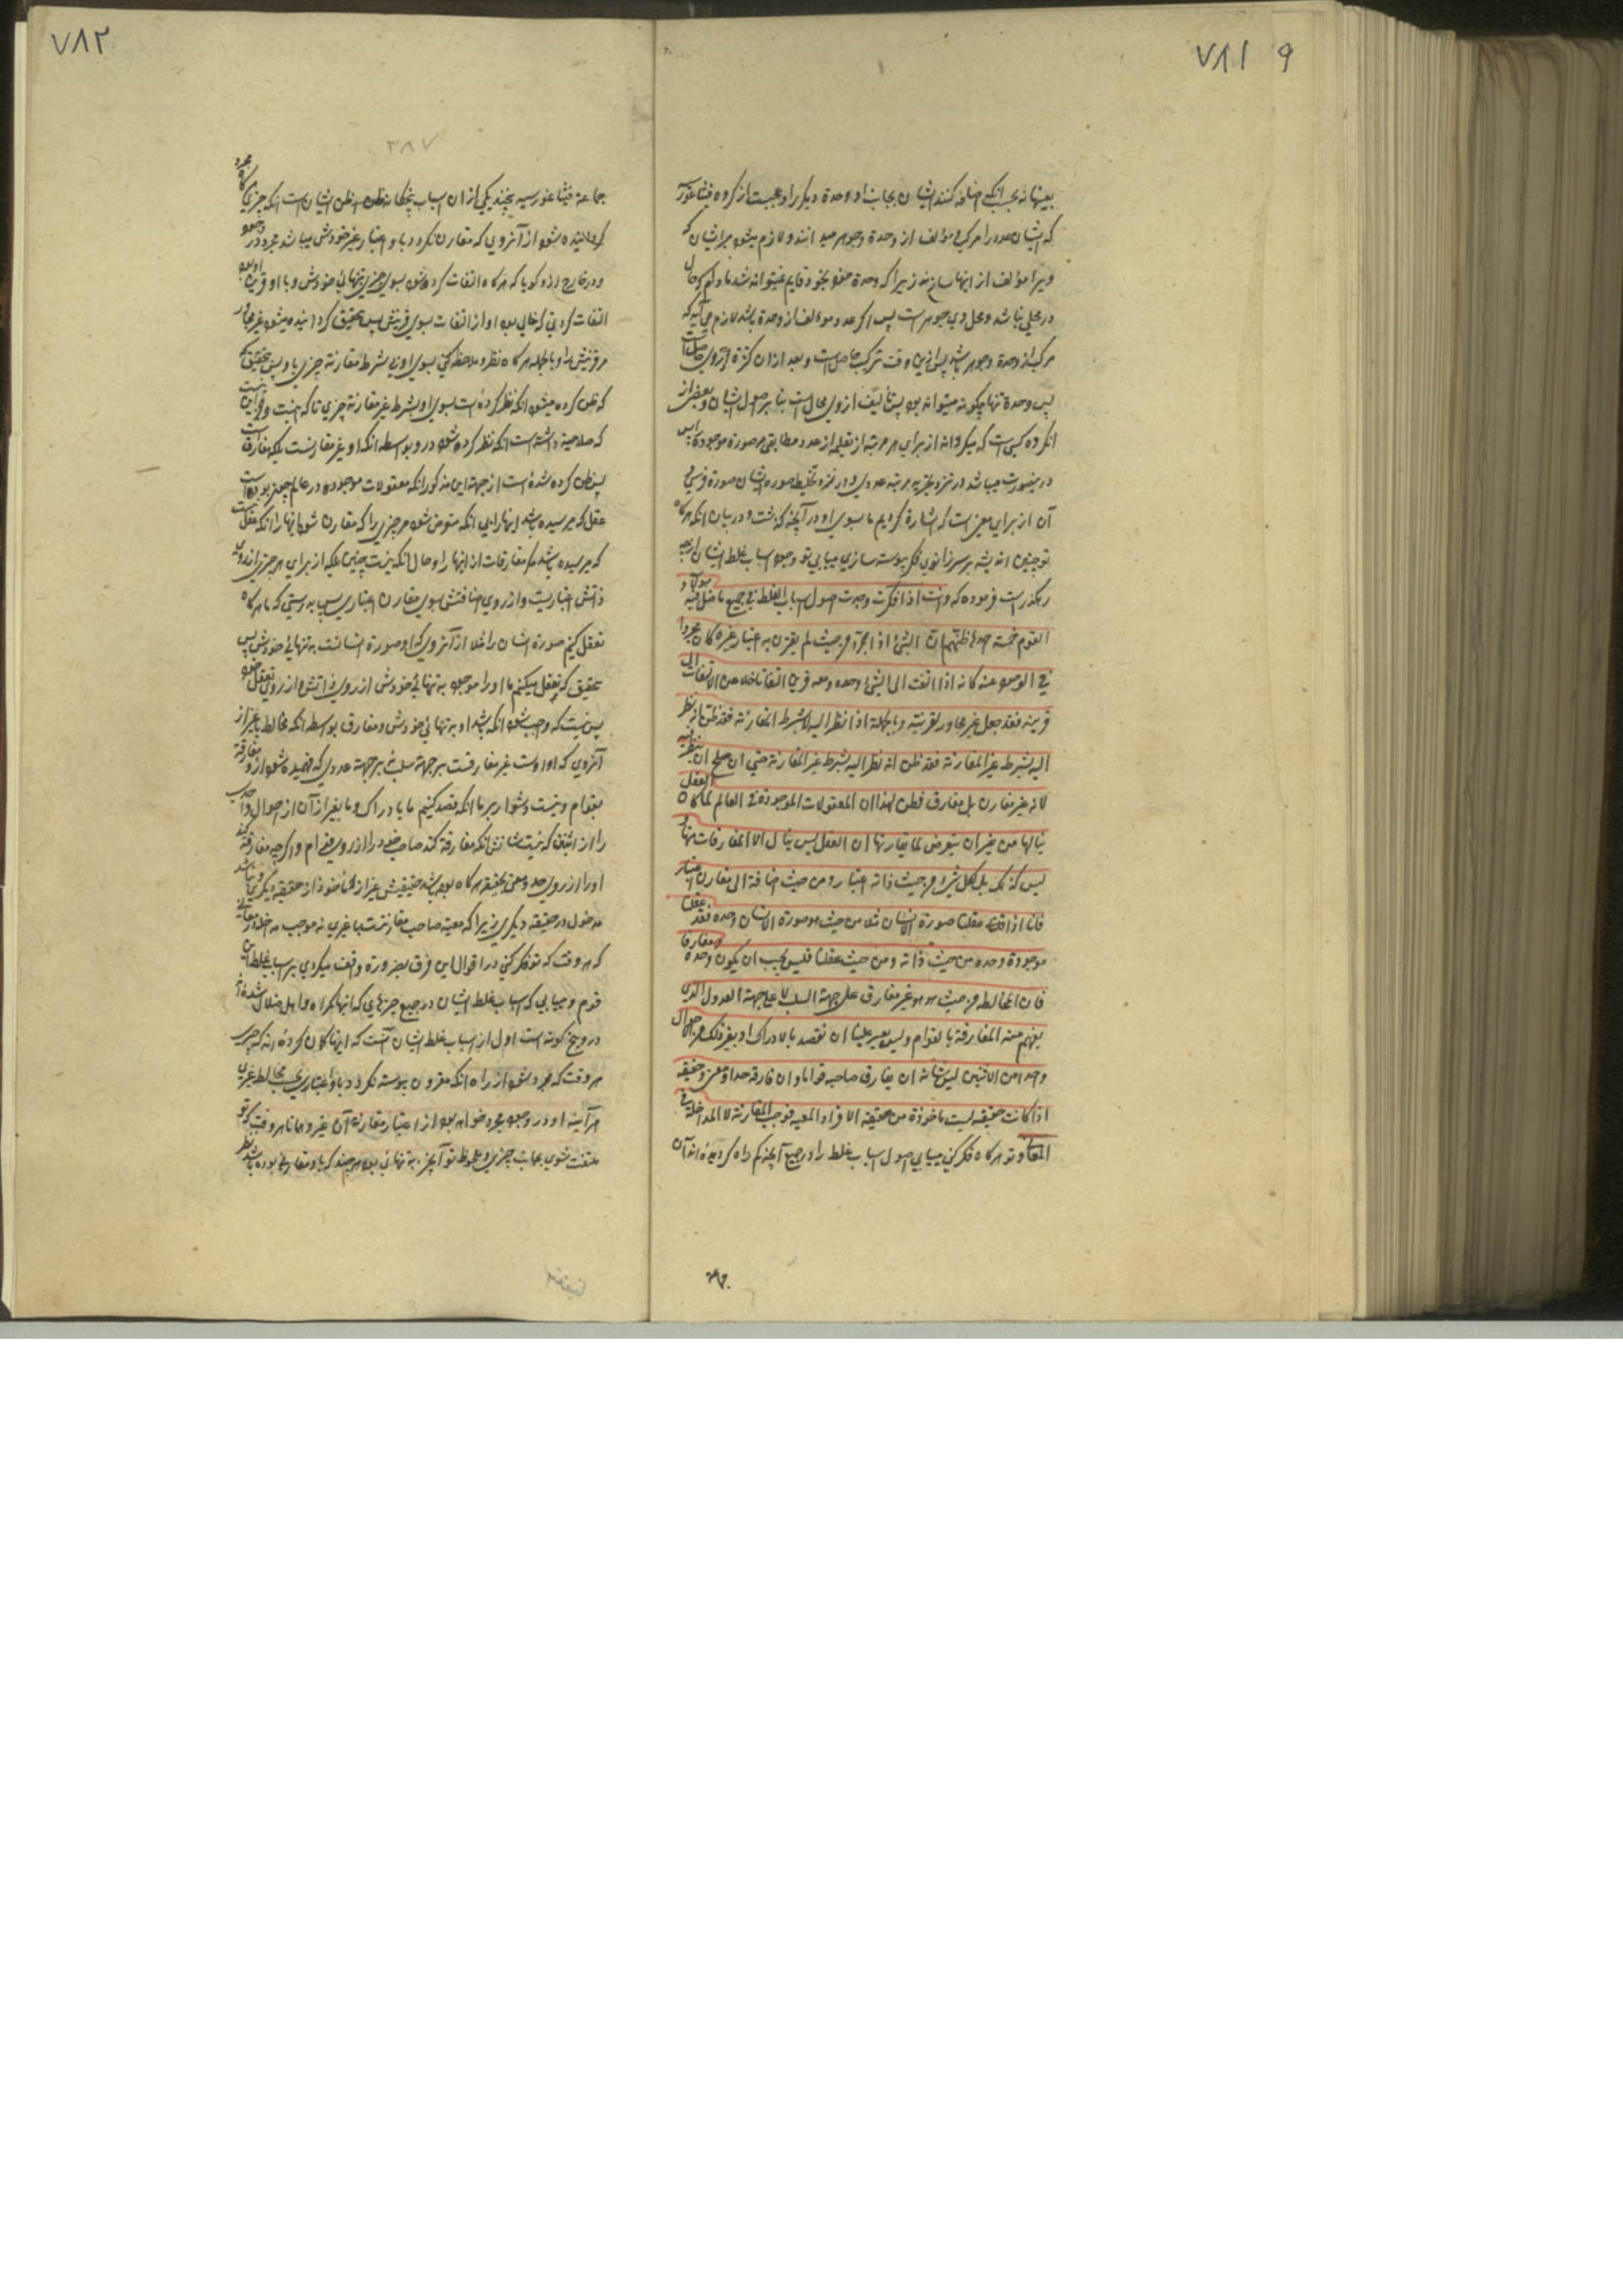 ٧٨١ ۹
بعینها نه بحسب انکه اضافه کنند ایشان بجانب او وحدة دیگر را و عجبست از کروه فیثاغور
که ایشان عدد را مرکب و مؤلف از وحدة و جوهر میدانند و لازم میشود بر ایشان که
ویرا مؤلف از اینها سازند زیرا که وحدة بخود قایم نمیتواند شد مادام که حال
در محلی نباشد و محل وی جوهر است پس اگر عدد مؤلف از وحدة باشد لازم می آید که
مرکب از وحدة و جوهر باشد پس درین وقت ترکیب حاصل است و بعد از ان کثرة از وی
پس وحدة تنها چکونه میتواند بود پس تألیف از وی محال است بنا بر اصول ایشان و بعضی از
انکروه کسی است که میکرداند از برای هر مرتبه از تعلیمی از عدد مطابق صورة موجوده پس
درینصورت میباشد در نزد تجرید مرتبه عددی و در نزد تخلیط صورة ایشان صورة فرسی
آن از برای معنی است که اشارة کردیم ما بسوی او در آنچه کذشت و در بیان انکه هرکاه
تو چنین اندیشه بر سر زانوی فکر پیوسته سازی میابی تو وجوه اسباب غلط ایشان
رهکذر است فرموده که و انت اذا فکرت وجدت اصول اسباب الغلط فی جمیع ما ضل فیه
القوم خمسة احدها ظنهم ان الشیء اذا جرد من حیث لم یقترن به اعتبار غیره کان مجردا
فی الوجود عنه کانه اذا التفت الی الشیء وحده و معه قرین التفاتا خلا عن الالتفات الی
قرینه فقد جعل غیر مجاور لقرینته و بالجملة اذا نظر الیه لا بشرط المقارنة فقد ظن انه نظر
الیه بشرط غیر المقارنة فقد ظن انه نظر الیه بشرط غیر المقارنة حتی ان صلح ان ینظر فیه
لانه غیر مقارن بل مفارق فظن لهذا ان المعقولات الموجودة فی العالم لما کان العقل
ینالها من غیر ان یتعرض لما یقارنها ان العقل لیس ینال الا المفارقات منها و
لیس کذلک بل لکل شیء من حیث ذاته اعتبار و من حیث اضافة الی مقارن اعتبار
فانا اذا عقلنا صورة الانسان مثلا من حیث هو صورة الانسان وحده فقد عقلنا
موجودة وحده من حیث ذاته و من حیث عقلنا فلیس یجب ان یکون وحده و مفارقا
فان المخالط من حیث هو هو غیر مفارق علی جهة السلب لا علی جهة العدول الذی
یفهم منه المفارقة بالقوام و لیس یعسر علینا ان نقصد بالادراک او بغیر ذلک من الاحوال
واحدا من الاثنین لیس شانه ان یفارق صاحبه قواما و ان فارقه حدا و معنی و حقیقة
اذا کانت حقیقته لیست ماخوذة من حقیقة الآخر اذ المعیة فوجب المقارنة لا المداخلة فی
المعانی و تو هرکاه فکر کنی میابی اصول اسباب غلط را در جمیع آنچه کم راه کردیده اند آن
جما
٧٨٢
٣٨٧
جماعة فیثاغورسیه پنج یکی از ان اسباب پنجکانه ظن ایشان است انکه چیزی هرکاه مجرد
کردانیده شود از آنروی که مقارن نکردد باو اعتبار غیر خودش میباشد مجرد در وجود
و در خارج ازو کویا که هرکاه التفات کرده شود بسوی چیزی بتنهائی خودش و با او قرین او بود
التفات کردنی که خالی بود او از التفات بسوی قرینش پس بتحقیق کردانیده میشود غیر مجاور
مر قرینش را و بالجمله هرکاه نظر و ملاحظه کنی بسوی او بی شرط مقارنة چیزی باو پس بتحقیق
که ظن کرده میشود انکه نظر کرده است بسوی او بشرط غیر مقارنة چیزی تا که
که صلاحیة داشته است انکه نظر کرده شود درو بواسطه انکه او غیر مقارنست بلکه مفارق است
پس ظن کرده شده است از جهة این مذکور انکه معقولات موجوده در عالم چون بوده است
عقل که میرسیده باشد اینها را بی انکه متعرض شود مر چیزی را که مقارن شود اینها را انکه عقل
که میرسیده باشد مکر مفارقات از اینها را و حال انکه نیست چنین بلکه از برای هر چیزی از روی
ذاتش اعتباریست و از روی اضافتش بسوی مقارن اعتباری پس بدرستی که ما هرکاه
تعقل کنیم صورة انسان را مثلا از آنروی که او صورة انسانست به تنهائی خودش پس
بتحقیق که تعقل میکنیم ما او را موجود به تنهائی خودش از روی ذاتش و از روی تعقل
پس نیست که واجب شود انکه باشد او به تنهائی خودش و مفارق بواسطه انکه مخالط با غیر از
آنروی که او اوست غیر مفارقست بر جهة سلب نه بر جهة عدولی که فهمیده شود ازو مفارقة
بقوام و نیست دشوار بر ما انکه قصد کنیم ما بادراک و یا بغیر از آن از احوال واحدی
را از اثنین که نیست شانش انکه مفارقة کند صاحب خود را از روی قوام و اگر چه مفارقة کند
او را از روی حد و معنی و حقیقة هرکاه بوده باشد حقیقتش غیر از مأخوذ از حقیقة دیگری و نباشد
مدخول در حقیقة دیگری زیرا که معیة صاحب مقارنتست با غیری نه موجب مداخله در معانی
که هر وقت که تو فکر کنی در اقوال این فرق بضرورة واقف میکردی بر اسباب غلط این
قوم و میابی که اسباب غلط ایشان در جمیع چیزهایی که اینها کمراه و اهل ضلال شده اند
درو پنج کونه است اول از اسباب غلط ایشان آنست که اینها کمان کرده اند که چیزی
هر وقت که مجرد شود از راه انکه مقرون پیوسته نکردد باو اعتباری مخالط غیری
هر آینه او در وجود مجرد خواهد بود از اعتبار مقارنة آن غیر و همانا هر وقت که تو
ملتفت شوی بجانب چیزی و ملحوظ تو آنچیز به تنهائی بود هر چند که باو مقارنی بوده باشد نظر